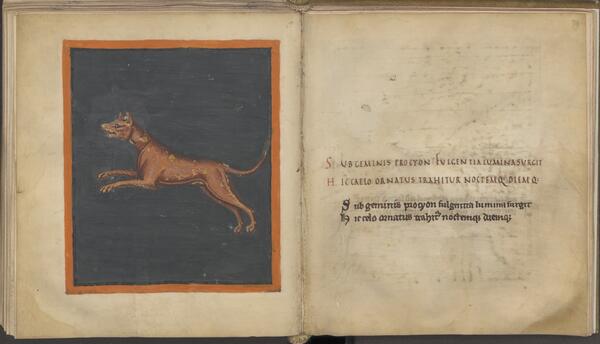 SUB GEMINIS PROCYON FULGENTIA LUMINA SURGIT
HIC CAELO ORNATUS TRAHITUR NOCTEMQ DIEMQ
Sub geminis procyon fulgentia lumina surgit
Hic celo ornatus trahit² noctemq; diemq;